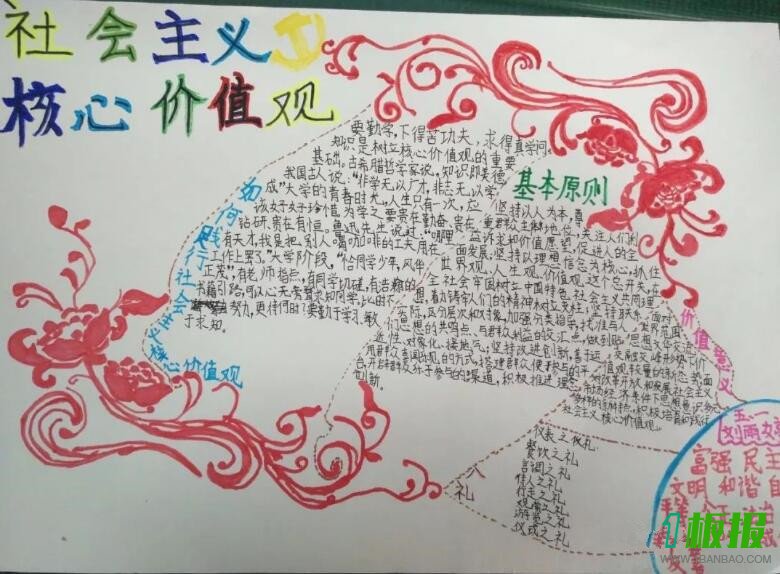 社会主义
核心价值观
如何践行社会
主义核心价值观
要勤学，下得苦功夫，求得真学问。
知识是树立核心价值观的重要
基础。古希腊哲学家说，知识即美德。
我国古人说："非学无以广才，非志无以学
成"大学的青春时光，人生只有一次，应
该好好珍惜为学之要贵在勤奋、贵在
钻研、贵在有恒。鲁迅先生说过，"哪里
有天才，我是把别人喝咖啡的工夫用在
工作上罢了。"大学阶段，"恰同学少年，风华
正茂"，有老师指点，有同学切磋，有浩瀚的
书籍引路，可以心无旁骛求知问学，此时不
努力，更待何时？要勤于学习、敏
于求知。
基本原则
坚持以人为本，尊
重群众主体地位，关注人们利
益诉求和价值愿望，促进人的全
面发展；坚持以理想信念为核心，抓住
世界观、人生观、价值观这个总开关，在
全社会牢固树立中国特色社会主义共同理
想，着力铸牢人们的精神支柱；坚持联系
实际，区分层次和对象，加强分类指导，找准与人
们思想的共鸣点、与群众利益的交汇点，做到贴
近性、对象化、接地气；坚持改进创新，善于运
用群众喜闻乐见的方式，搭建群众便于参与的平
台，开辟群众乐于参与的渠道，积极推进理念
创新
价值意义
面对
世界范围
思想文化交流
交融交锋形势下价
值观较量的新态势，面
对改革开放和发展社会主义
市场经济条件下思想意识多元
多样多变的新特点，积极培育和践行
社会主义核心价值观。
八
礼
仪表之礼
餐饮之礼
言谈之礼
待人之礼
行走之礼
观赏之礼
游览之礼
仪式之礼
五、一
刘雨
富强 民主
文明 和谐 自
板报
WWW.1BANBAO.COM